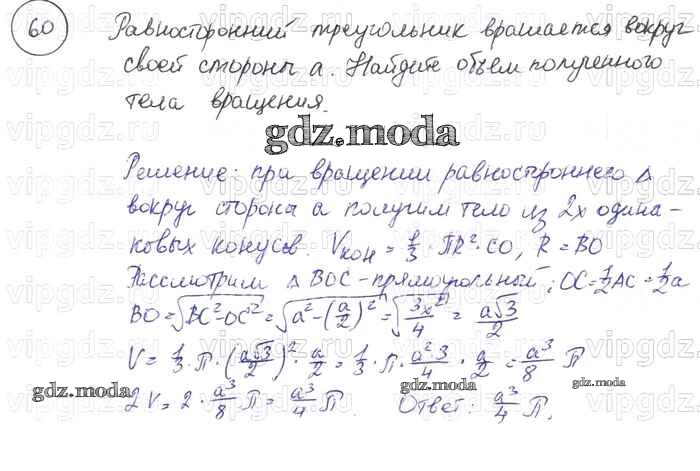 60 Равносторонний треугольник вращается вокруг
своей стороны а. Найдите объем полученного
тела вращения.
gdz.moda
Решение: при вращении равностороннего Δ
вокруг стороны а получим тело из 2х одина-
ковых конусов. Vкон = 1/3 · ПR² · CO, R = BO
Рассмотрим Δ BOC - прямоугольный; OC = 1/2 AC = 1/2 a
BO = √(BC² - OC²) = √(a² - (a/2)²) = √(3x²/4) = a√3/2
V = 1/3 · П · (a√3/2)² · a/2 = 1/3 · П · a²3/4 · a/2 = a³/8 П
gdz.moda gdz.moda
2V = 2 · a³/8 П = a³/4 П. Ответ: a³/4 П.